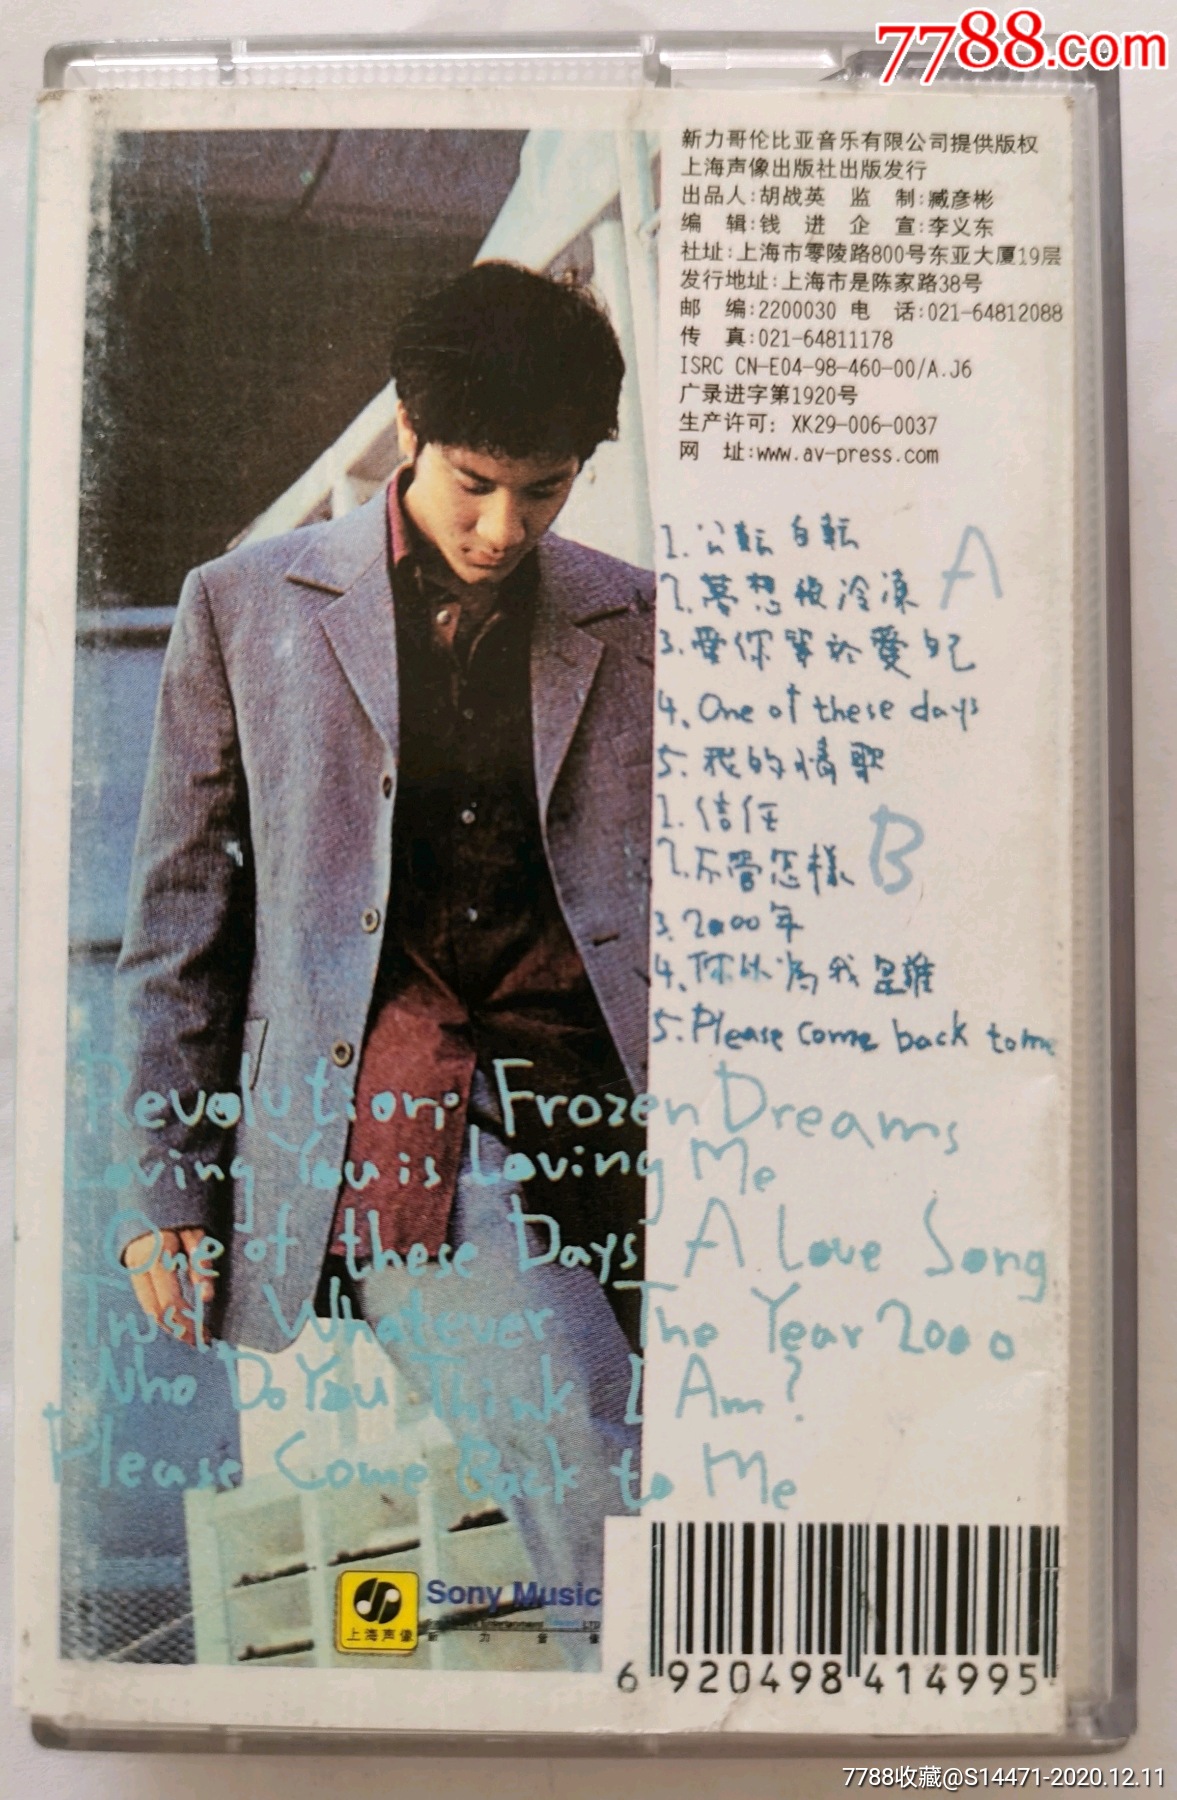 7788.com
新力哥伦比亚音乐有限公司提供版权
上海声像出版社出版发行
出品人:胡战英 监 制:臧彦彬
编 辑:钱 进 企 宣:李义东
社址:上海市零陵路800号东亚大厦19层
发行地址:上海市是陈家路38号
邮 编:2200030 电 话:021-64812088
传 真:021-64811178
ISRC CN-E04-98-460-00/A.J6
广录进字第1920号
生产许可: XK29-006-0037
网 址:www.av-press.com
1. 公転自転 A
2. 夢想被冷凍
3. 愛你等於愛自己
4. One of these days
5. 我的情歌
1. 信任 B
2. 不管怎樣
3. 2000年
4. 你以為我是誰
5. Please come back to me
Revolution; Frozen Dreams
Loving You is Loving Me
One of these Days A Love Song
Trust Whatever The Year 2000
Who Do You Think I Am?
Please Come Back to Me
上海声像
Sony Music
新力音像
6 920498 414995
7788收藏@S14471-2020.12.11